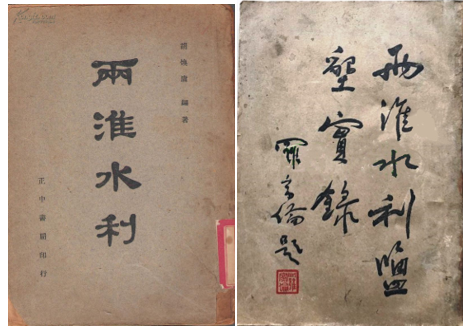 兩淮水利
胡煥庸 編著
正中書局印行
兩淮水利鹽
墾實錄
羅家倫題